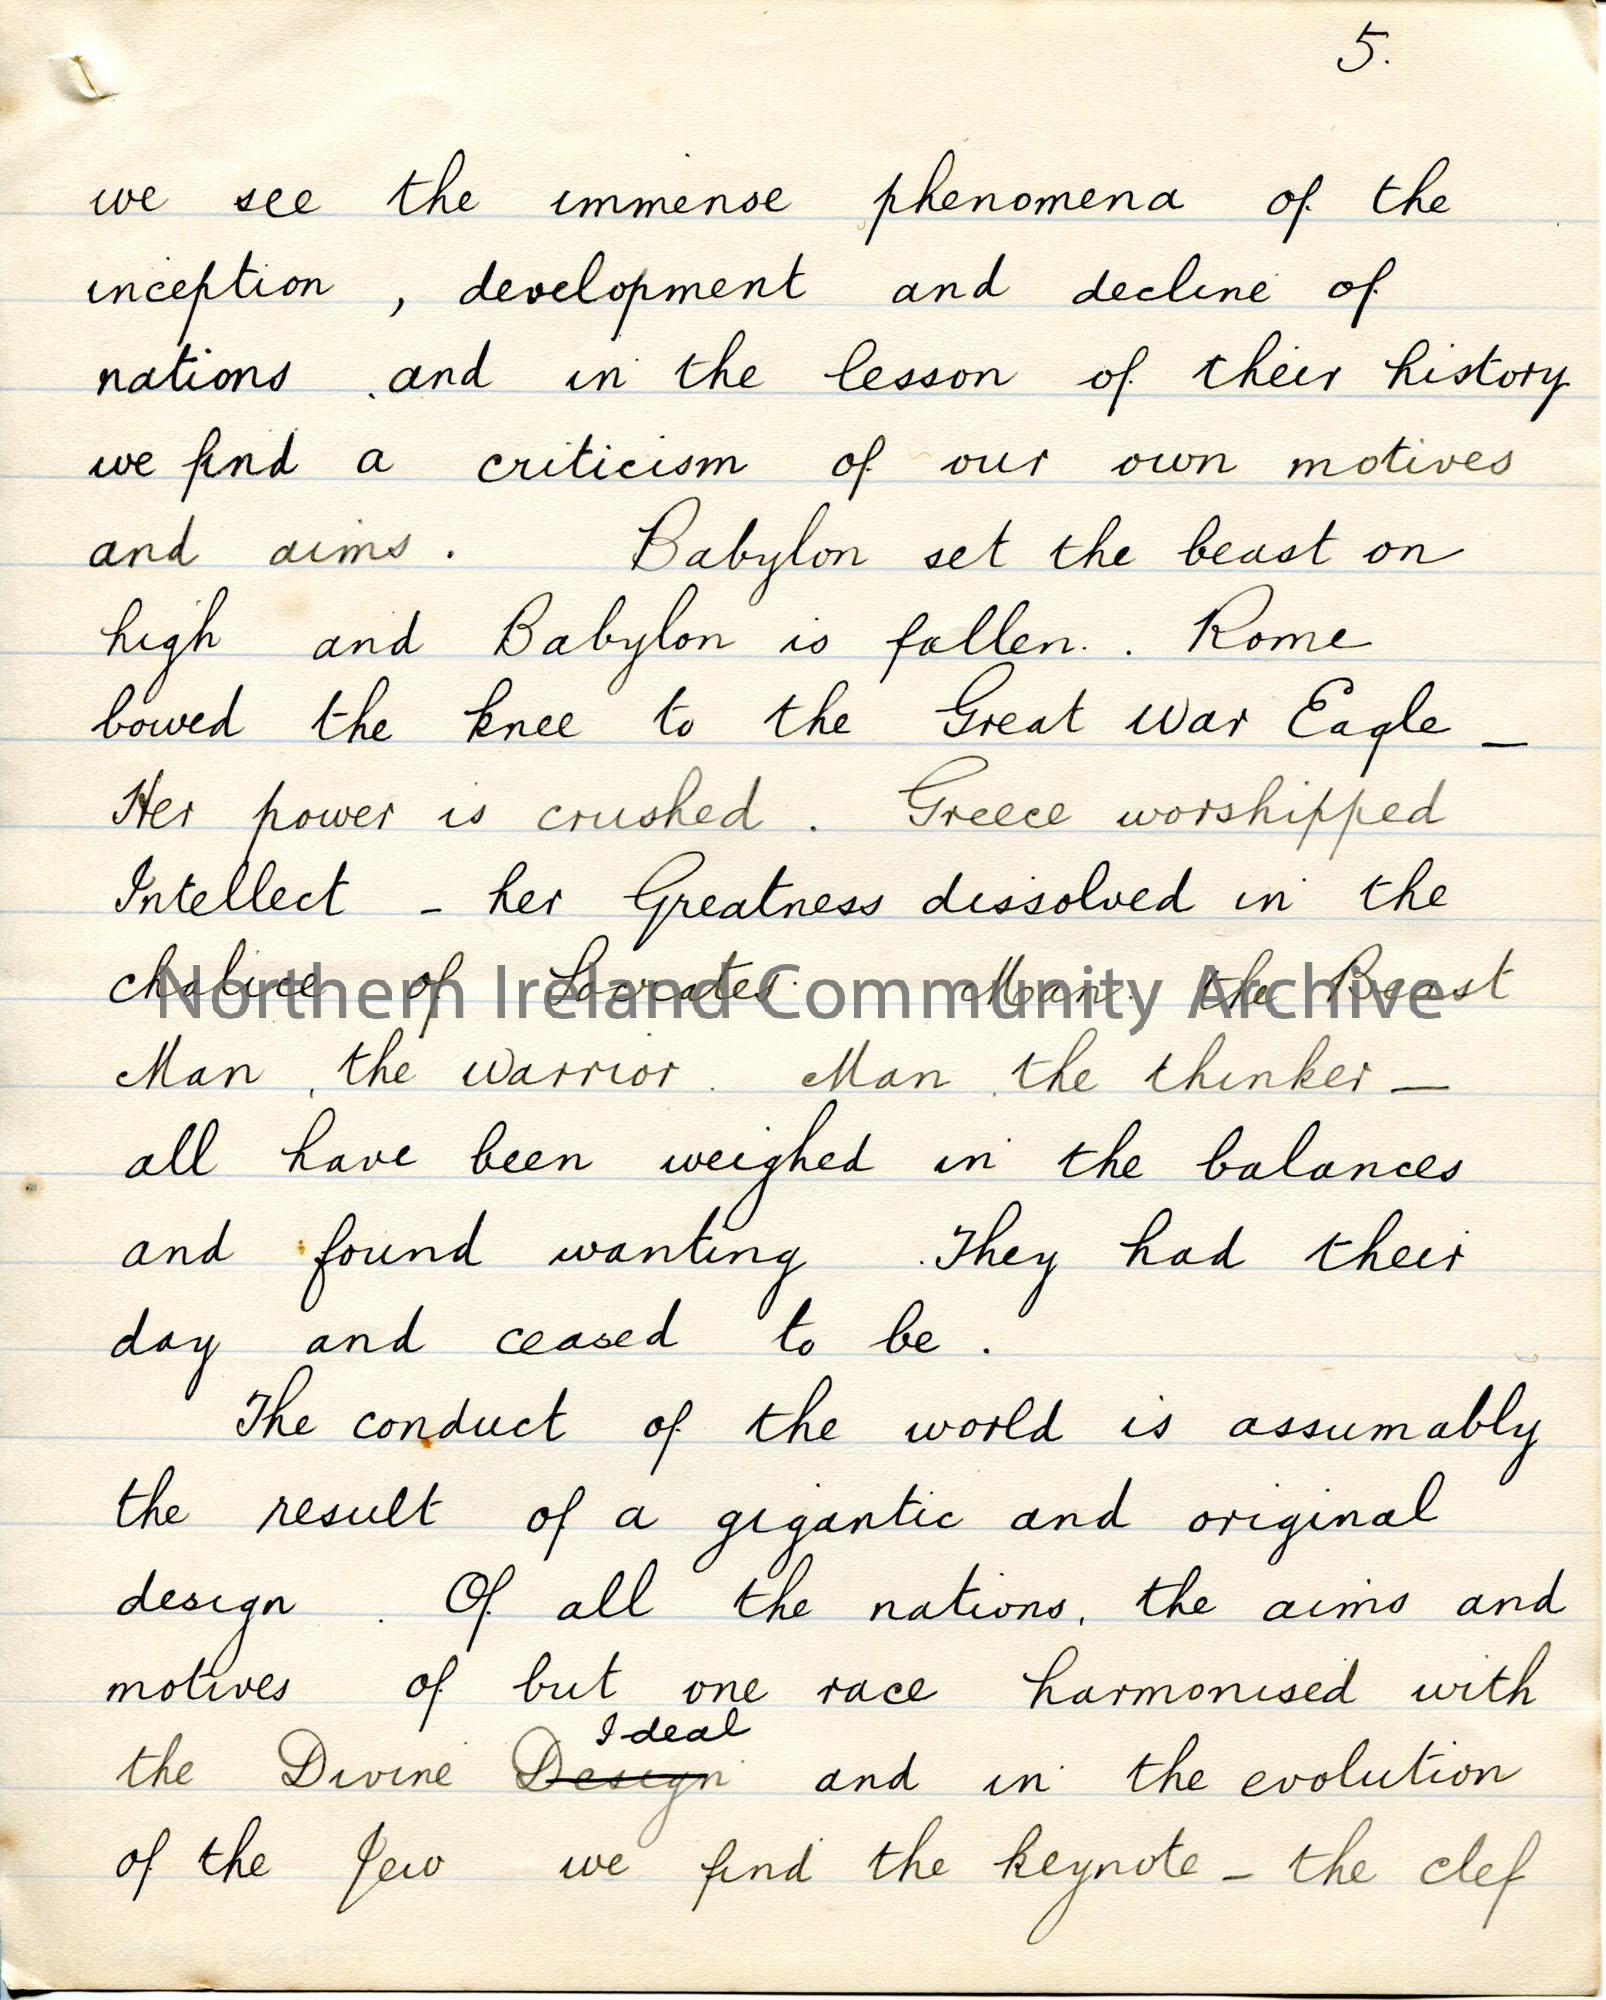 5.
we see the immense phenomena of the
inception , development and decline of
nations , and in the lesson of their history
we find a criticism of our own motives
and aims . Babylon set the beast on
high and Babylon is fallen . Rome
bowed the knee to the Great War Eagle –
Her power is crushed . Greece worshipped
Intellect – her Greatness dissolved in the
chalice of Socrates . Man . the Beast
Northern Ireland Community Archive
Man , the Warrior . Man , the thinker –
all have been weighed in the balances
and found wanting . They had their
day and ceased to be .
The conduct of the world is assumably
the result of a gigantic and original
design . Of all the nations , the aims and
motives of but one race harmonised with
Ideal
the Divine Design and in the evolution
of the Jew we find the keynote – the clef